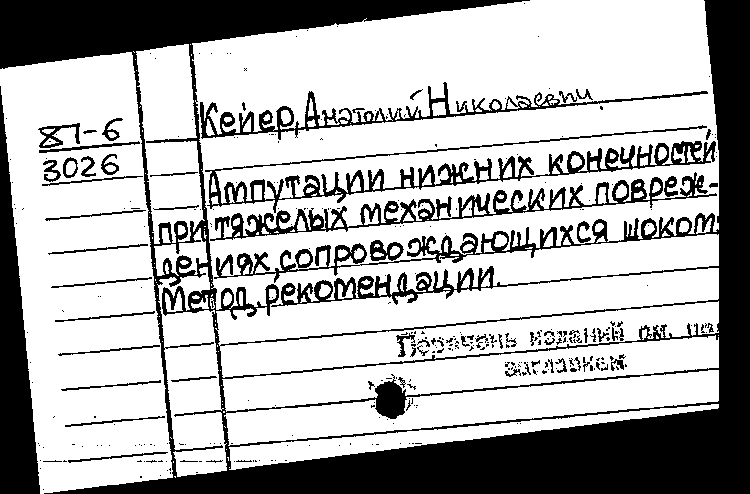 87-6
3026
Кейер, Анатолий Николаевич.
Ампутации нижних конечностей
при тяжелых механических повреж-
дениях, сопровождающихся шоком:
Метод. рекомендации.
Перечень изданий см. под
заглавием